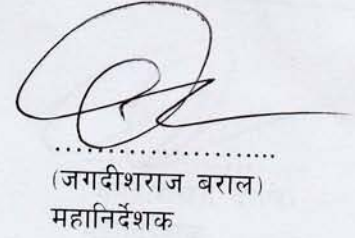 ..............................
(जगदीशराज बराल)
महानिर्देशक